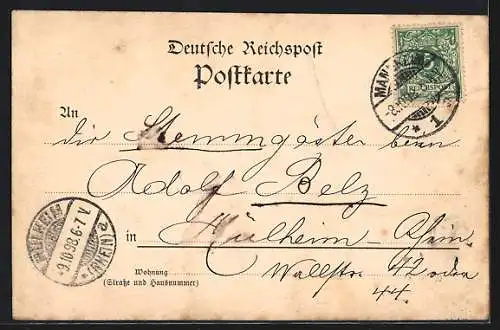 Deutsche Reichspost
Postkarte
An
die Stammgäste beim
Adolf Belz
in Mülheim-Rhein
Wohnung
(Straße und Hausnummer)
Wallstr 42 oder
44.
MÜLHEIM
9.10.98.6-7 V.
(RHEIN) a
1